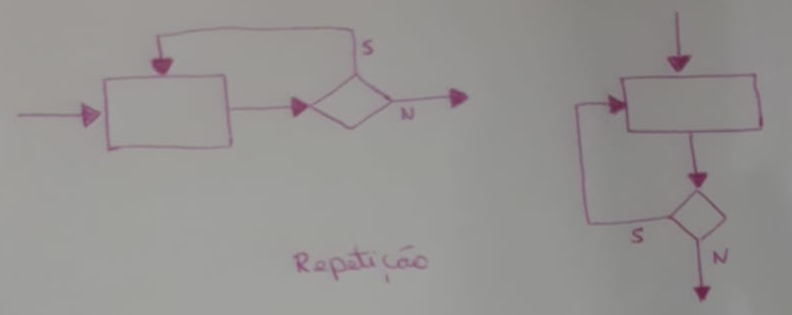 S
N
S
N
Repetição